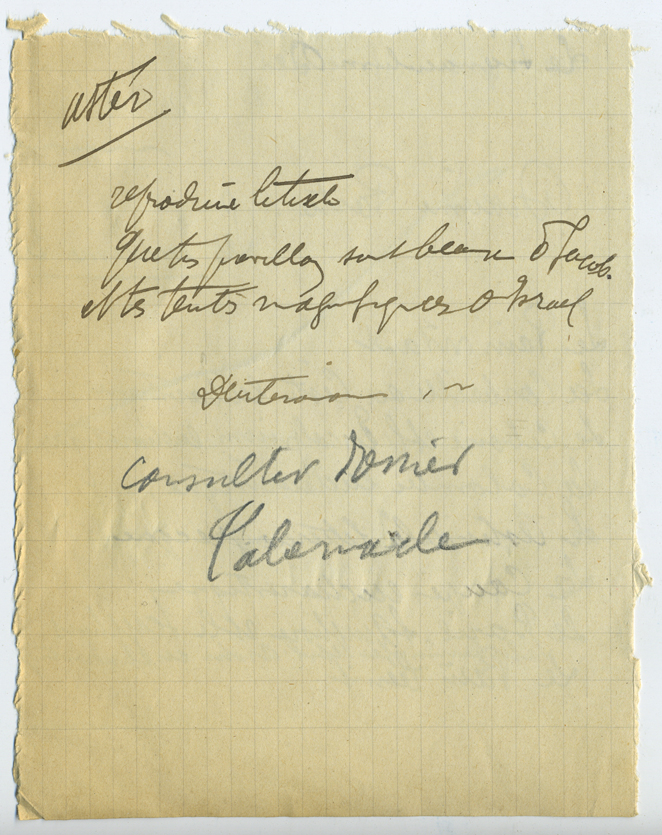 reproduire le texte
Que tes pavillons sont beaux ô Jacob.
et tes tentes magnifiques ô Israel
consulter dossier
Tabernacle